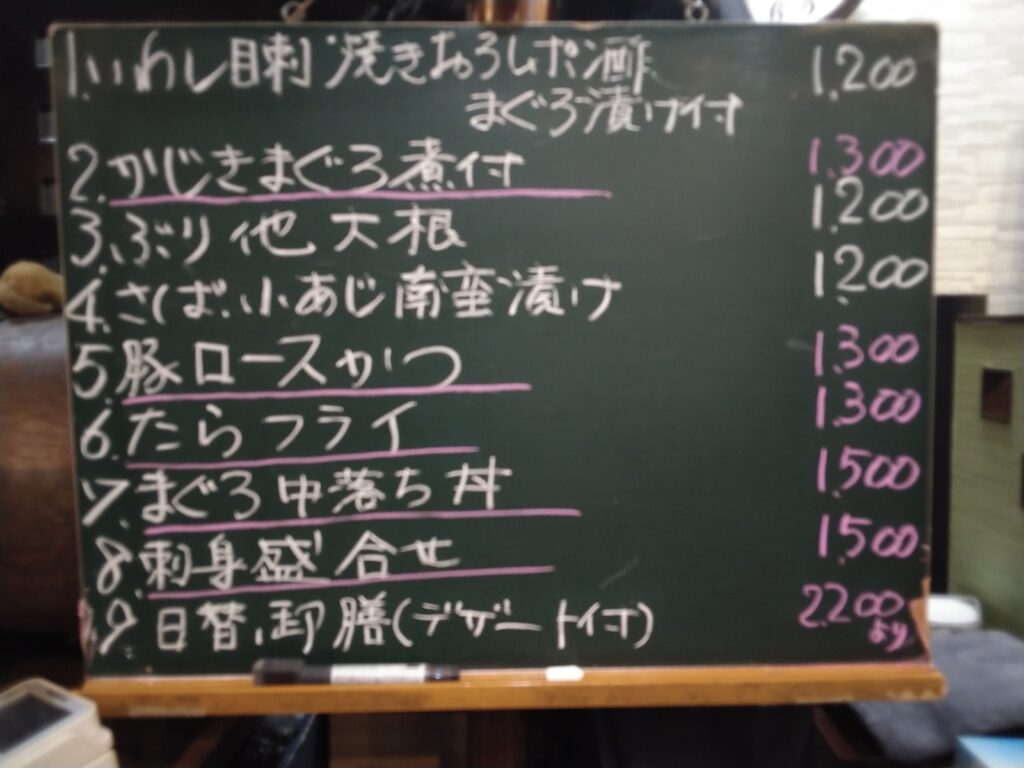 1.いわし目刺 焼きおろしポン酢 1.200
まぐろ漬け付
2.かじきまぐろ煮付 1.300
3.ぶり他大根 1.200
4.さば.小あじ南蛮漬け 1.200
5.豚ロースかつ 1.300
6.たらフライ 1.300
7.まぐろ中落ち丼 1.500
8.刺身盛合せ 1.500
9.日替.御膳(デザート付) 2.200
より